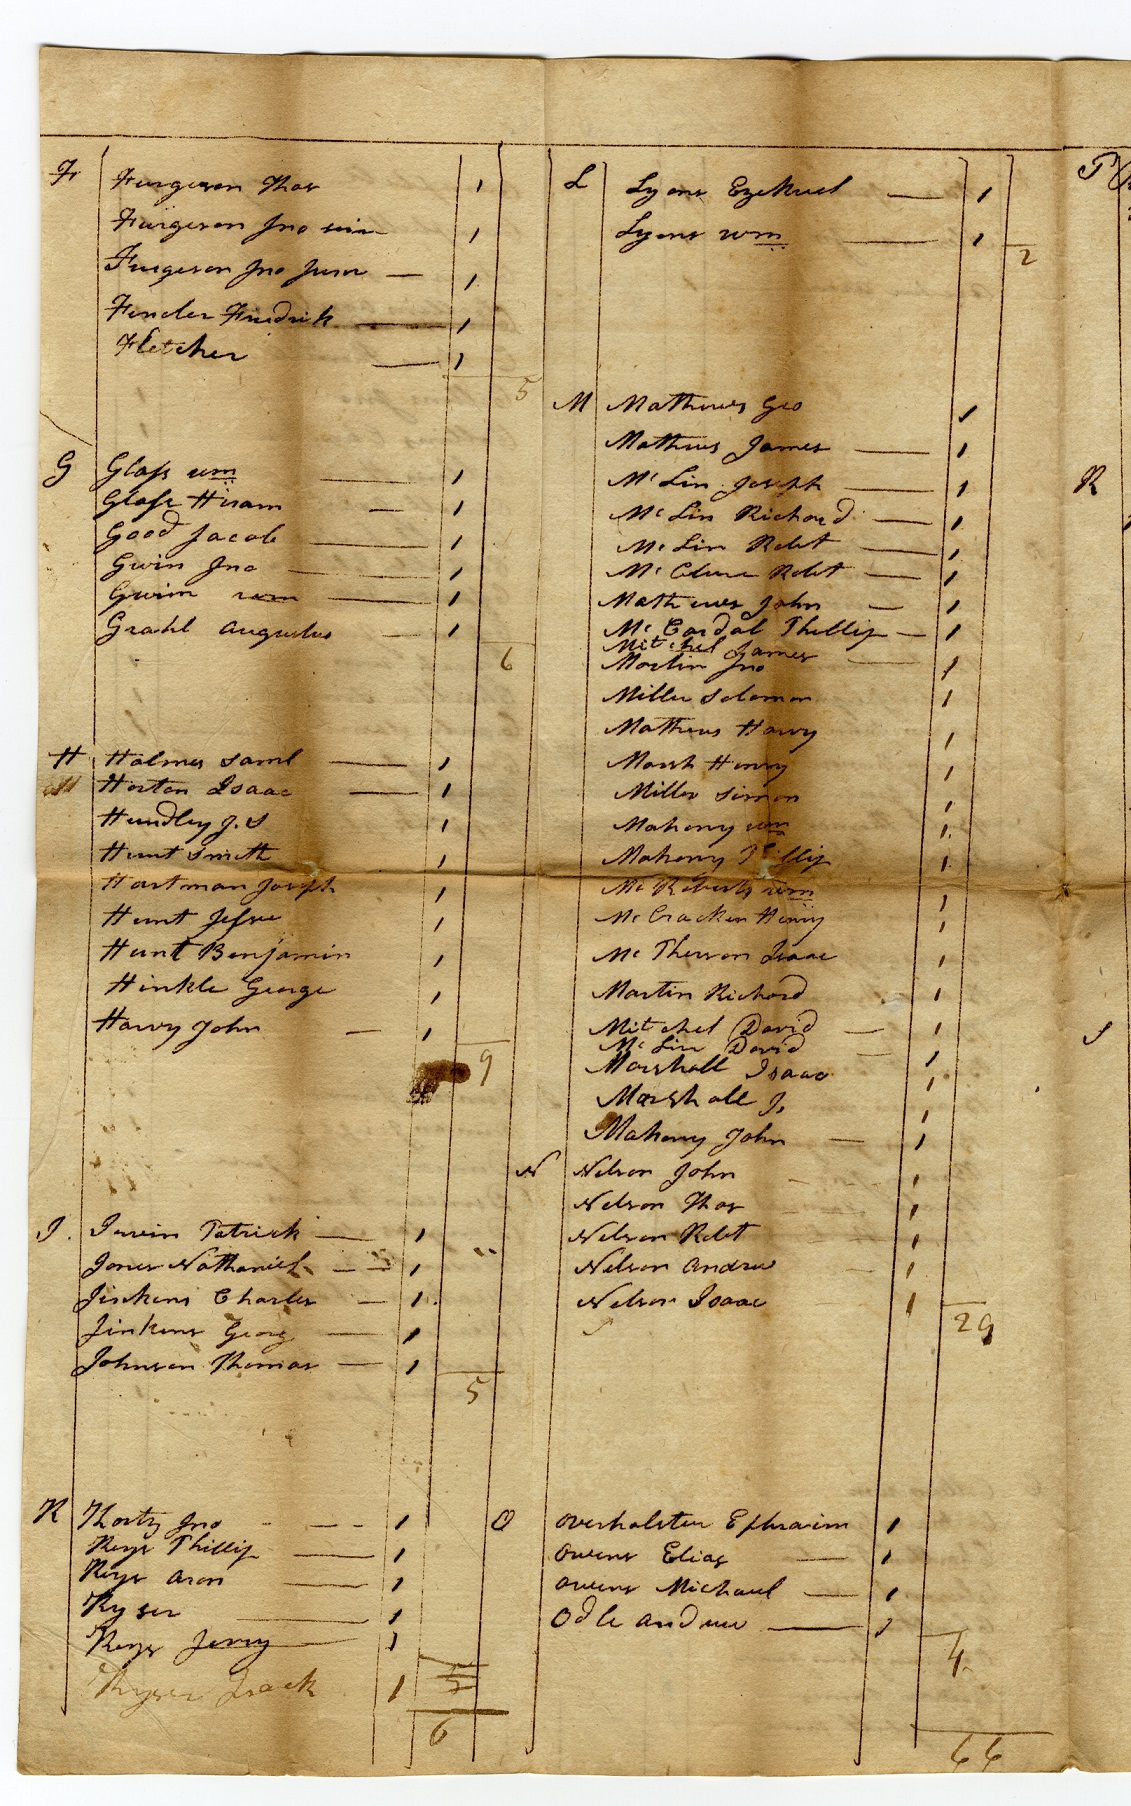 F Furgeson Thos 1
Furgeson Jno sein 1
Furgeson Jno Junr 1
Fender Fredrick 1
Fletcher 1
5
G Glass wm 1
Glass Hiram 1
Good Jacob 1
Gwin Jno 1
Gwinn wm 1
Grahl Augustus 1
6
H Holmes Saml 1
Horton Isaac 1
Hundley J. S 1
Hunt Smith 1
Hartman Joseph 1
Hunt Jesse 1
Hunt Benjamin 1
Hinkle George 1
Harvy John 1
9
J. Irwin Patrick 1
Jones Nathaniel 1
Jinkens Charles 1
Jinkens Georg 1
Johnson Thomas 1
5
K Jno 1
Keys Phillip 1
Keys Aron 1
Kyser 1
Keys Jerry 1
Kyser Isack 1
6
L Lyons Ezekiel 1
Lyons wm 1
2
M Mathews Geo 1
Mathews James 1
Mc Lin Joseph 1
Mc Lin Richard 1
Mc Lin Robt 1
Mc Clure Robt 1
Mathews John 1
Mc Cordal Phillip 1
Mitchel James
Martin Jno 1
Miller Solomon 1
Mathews Harvy 1
Marsh Henry 1
Miller Simon 1
Mahony wm 1
Mahony Phillip 1
Mc Roberts wm 1
Mc Cracken Henry 1
Mc Pherson Isaac 1
Martin Richard 1
Mitchel David 1
Mc Lin David 1
Marshall Isaac 1
Marshall J. 1
Mahony John 1
N Nelson John 1
Nelson Thos 1
Nelson Robt 1
Nelson Andrew 1
Nelson Isaac 1
29
O Overholster Ephraim 1
Owens Elias 1
Owens Michael 1
Odle Andrew 1
4
66
P
R
S